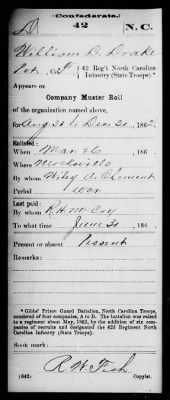 (Confederate.)
D 42 N.C.
William D. Drake
42 Reg't North Carolina
Infantry (State Troops) *
Appears on
Company Muster Roll
of the organization named above,
for Aug 31 to Dec 31, 1862.
Enlisted:
When Mar 26, 186
Where Mocksville
By whom Wiley A. Clement
Period war
Last paid:
By whom R. H. McCoy
To what time June 30, 186
Present or absent Present
Remarks:
* Gibbs' Prison Guard Battalion, North Carolina Troops,
consisted of four companies, A to D. The battalion was raised
to a regiment about May, 1862, by the addition of six com-
panies of recruits and designated the 42d Regiment North
Carolina Infantry (State Troops).
Book mark:
R. W. Fish
(642) Copyist.